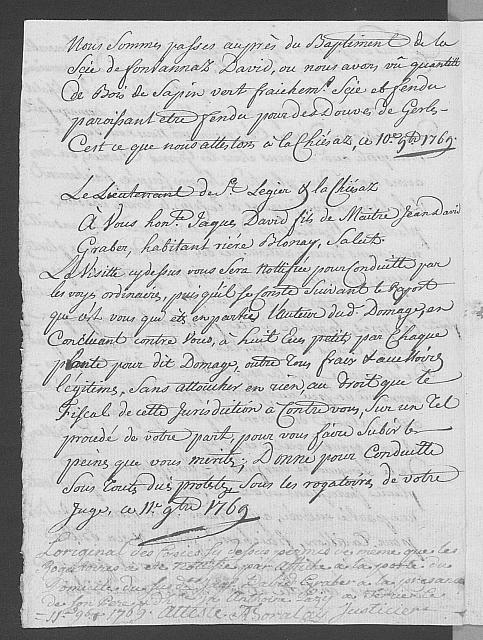 Nous Sommes passes auprès du Baptiment de la
Scie de fontannaz David, ou nous avons vû quantité
de Bois de Sapin vert fraichemt. Scie et fendu
paroissant etre fendu pour des Douves de Gerle
C'est ce que nous attestons à la Chiésaz, ce 10e. 9bre 1769.
Le Lieutenant de St. Legier & la Chiésaz
À Vous hont. Jaques David fils de Maitre Jean David
Graber, habitant riere Blonay, Salut.
La Visitte cy dessus vous Sera Nottifiée pour Conduitte par
les voyes ordinaires, puis qu'il se Conste Suivant le raport
que c'est vous qui êtes en partie l'auteur dud. Domage, en
Concluant contre Vous, à huit Ecus petits par Chaque
plante pour dit Domage, outre tous frais & accessoires
legitimes, Sans attoucher en rien, au Droit que le
Fiscal de cette Jurisdiction à Contre vous, Sur un tel
procedé de votre part, pour vous faire Subir les
peines que vous mérités; Donné pour Conduitte
Sous toutes dues protestes Sous les rogatoires de votre
Juge, ce 11e. 9bre 1769
L'original des Cy dessus de meme que les
Rogatoires a été Nottifié par affiche à la porte du
Domicille du David Graber à la presence
de son Pere
11e. 9bre 1769. Atteste Justicier